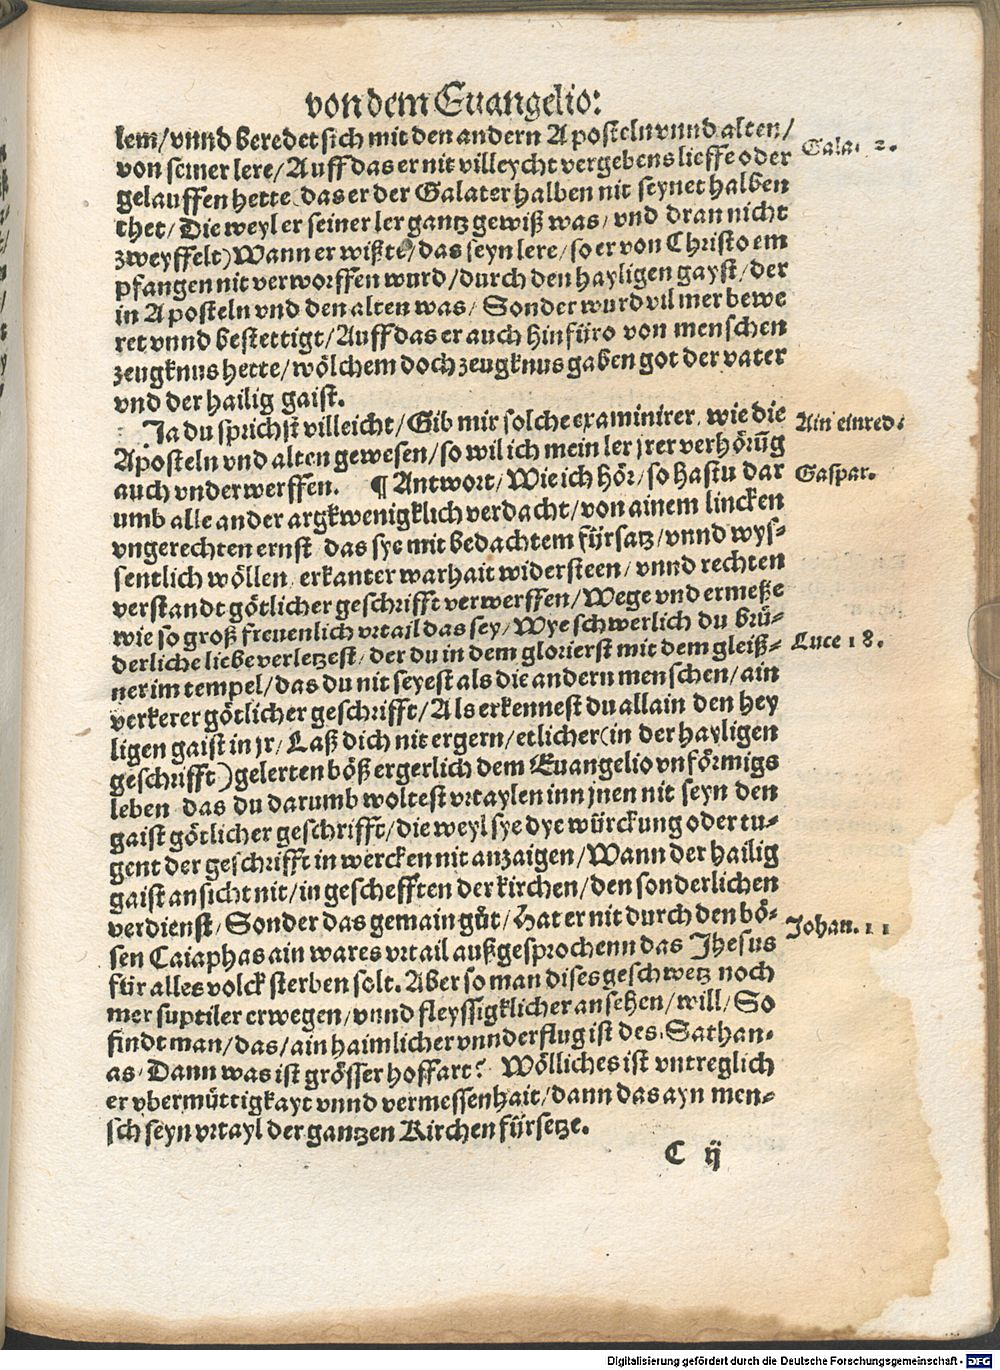 von dem Euangelio:
lem/ vnnd beredet sich mit den andern Aposteln vnnd alten/
von seiner lere/ Auff das er nit villeycht vergebens lieffe oder
Gala. 2.
gelauffen hette das er der Galater halben nit seynet halben
thet/ Die weyl er seiner ler gantz gewiß was/ vnd dran nicht
zweyffelt) Wann er wißte/ das seyn lere/ so er von Christo em
pfangen nit verworffen wurd/ durch den hayligen gayst/ der
in Aposteln vnd den alten was/ Sonder wurd vil mer bewe
ret vnnd bestettigt/ Auff das er auch hinfüro von menschen
zeugknus hette/ wölchem doch zeugknus gaben got der vater
vnd der hailig gaist.
Ja du sprichst villeicht/ Gib mir solche examinirer, wie die
Ain einred.
Aposteln vnd alten gewesen/ so wil ich mein ler jrer verhörūg
auch vnderwerffen. ¶ Antwort/ Wie ich hör/ so hastu dar
Gaspar.
umb alle ander argkwenigklich verdacht/ von ainem lincken
vngerechten ernst das sye mit bedachtem fürsatz/ vnnd wys⸗
sentlich wöllen, erkanter warhait widersteen/ vnnd rechten
verstandt götlicher geschrifft verwerffen/ Wege vnd ermeße
wie so groß freuenlich vrtail das sey/ Wye schwerlich du brü⸗
derliche liebe verletzest/ der du in dem glorierst mit dem gleiß⸗
Luce 18.
ner im tempel/ das du nit seyest als die andern menschen/ ain
verkerer götlicher geschrifft/ Als erkennest du allain den hey
ligen gaist in jr/ Laß dich nit ergern/ etlicher (in der hayligen
geschrifft) gelerten böß ergerlich dem Euangelio vnförmigs
leben das du darumb woltest vrtaylen inn jnen nit seyn den
gaist götlicher geschrifft/ die weyl sye dye würckung oder tu⸗
gent der geschrifft in wercken nit anzaigen/ Wann der hailig
gaist ansicht nit/ in geschefften der kirchen/ den sonderlichen
verdienst/ Sonder das gemain gůt/ Hat er nit durch den bö⸗
Johan. 11
sen Caiaphas ain wares vrtail außgesprochenn das Jhesus
für alles volck sterben solt. Aber so man dises geschwetz noch
mer suptiler erwegen/ vnnd fleyssigklicher ansehen/ will/ So
findt man/ das/ ain haimlicher vnnderflug ist des Sathan⸗
as. Dann was ist grösser hoffart? Wölliches ist vntreglich
er vbermüttigkayt vnnd vermessenhait/ dann das ayn men⸗
sch seyn vrtayl der gantzen Kirchen fürsetze.
C ij
Digitalisierung gefördert durch die Deutsche Forschungsgemeinschaft - DFG